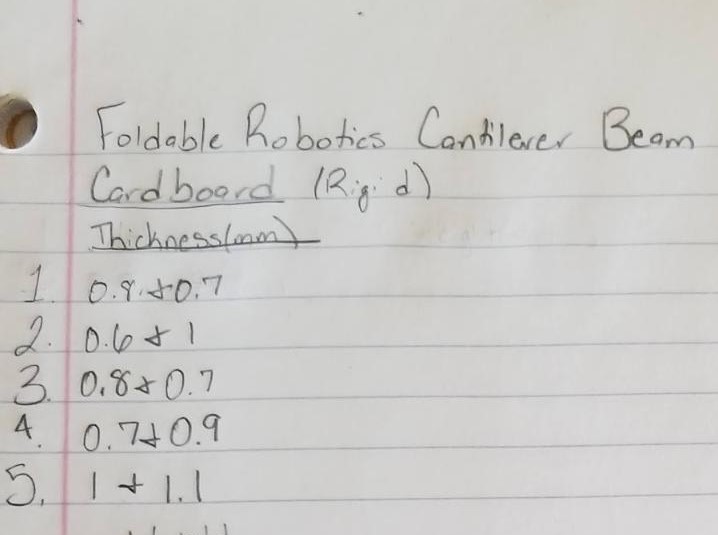 Foldable Robotics Cantilever Beam
Cardboard (Rigid)
Thickness(mm)
1. 0.9 & 0.7
2. 0.6 & 1
3. 0.8 & 0.7
4. 0.7 & 0.9
5. 1 & 1.1